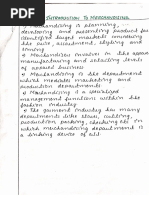 INTRODUCTION TO MERCHANDISING
Merchandising is planning,
developing and presenting product for
identified target markets considering
the price, assortment, styling and
timing
Merchandiser involves in the apparel
manufacturing and retailing levels
of apparel business
Merchandising is the department
which mediates marketing and
production departments
Merchandising is a specialised
management functions within the
fashion industry
The garment industry has many
departments like stores, cutting,
production, packing, checking etc in
which merchandising department is
a linking device of all